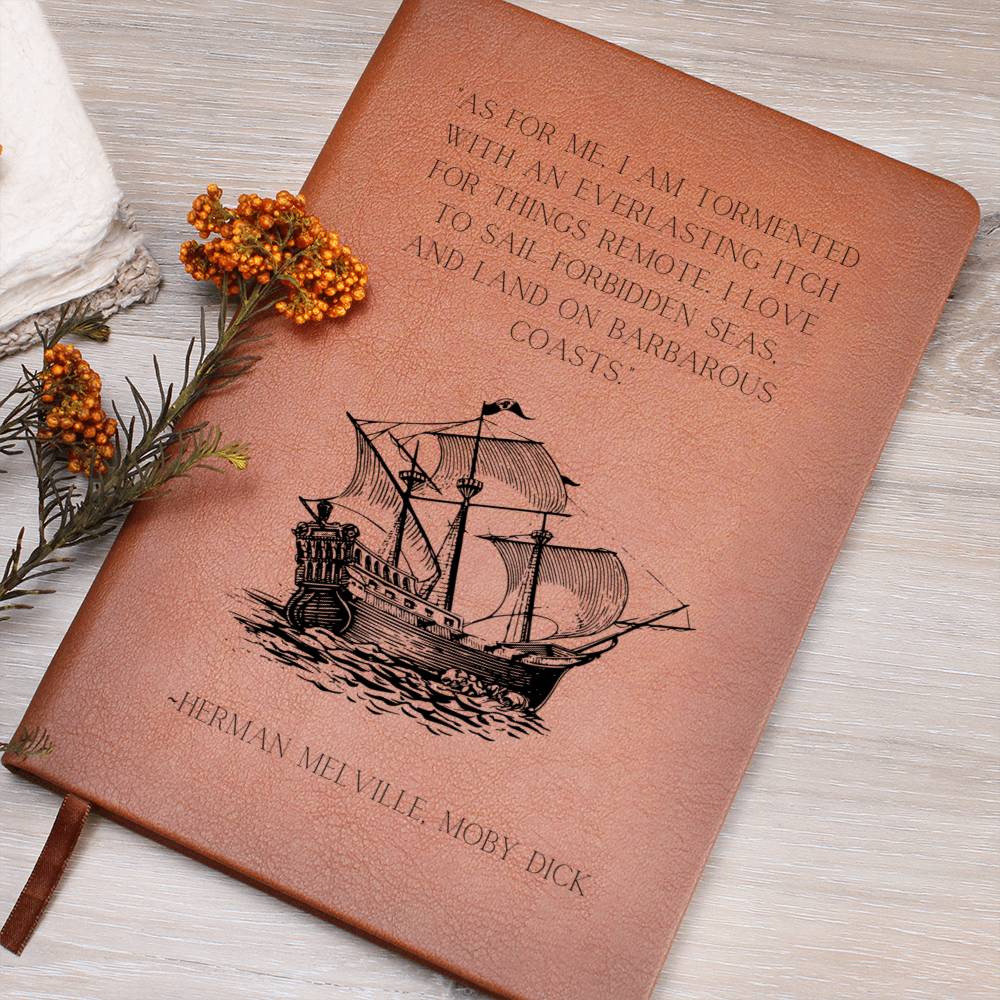 "AS FOR ME, I AM TORMENTED
WITH AN EVERLASTING ITCH
FOR THINGS REMOTE. I LOVE
TO SAIL FORBIDDEN SEAS,
AND LAND ON BARBAROUS
COASTS."
~HERMAN MELVILLE, MOBY DICK